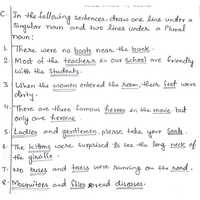 C. In the following sentences draw one line under a
Singular noun and two lines under a Plural
noun:
1. There were no boats near the bank.
2. Most of the teachers in our school are friendly
with the students.
3. When the women entered the room, their feet were
dirty.
4. There are three famous heroes in the movie but
only one heroine.
5. Ladies and gentlemen, please take your seats.
6. The were surprised to see the long neck of
the giraffe.
7. No buses and taxis were running on the road.
8. Mosquitoes and flies spread diseases.